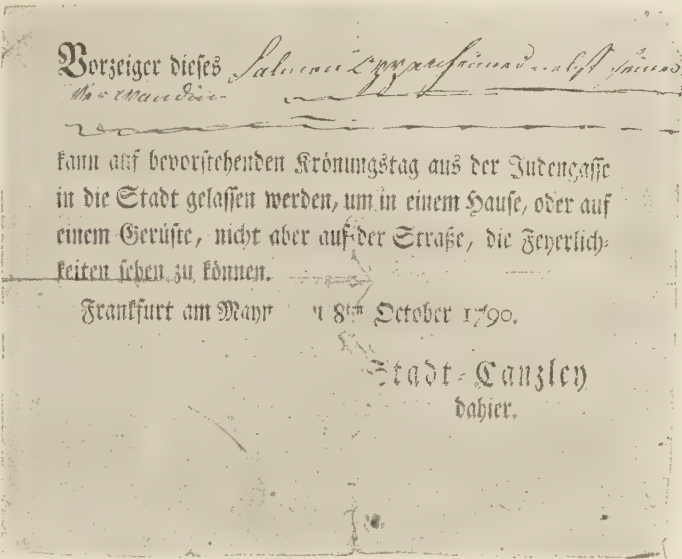 Vorzeiger dieses Salmon Oppenheimer nebst seiner
Verwandtin
kann auf bevorstehenden Krönungstag aus der Judengasse
in die Stadt gelassen werden, um in einem Hause, oder auf
einem Gerüste, nicht aber auf der Straße, die Feyerlich-
keiten sehen zu können.
Frankfurt am Mayn 8ten October 1790.
Stadt-Canzley
dahier.